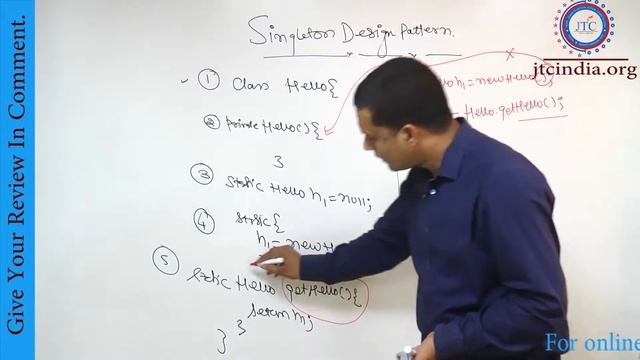 Give Your Review In Comment.
Singleton Design Pattern.
① Class Hello{
② private Hello(){
}
③ static Hello h1=null;
④ static{
h1=new H
⑤ static Hello getHello(){
return h1;
}
}
h1=new Hello();
Hello.getHello();
JTC
jtcindia.org
For online